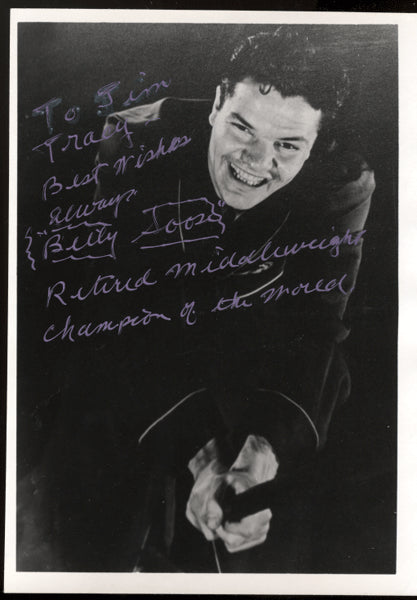 To Tim
Tracy -
Best Wishes
Always
{"Billy Soose"}
Retired Middleweight
Champion of the World